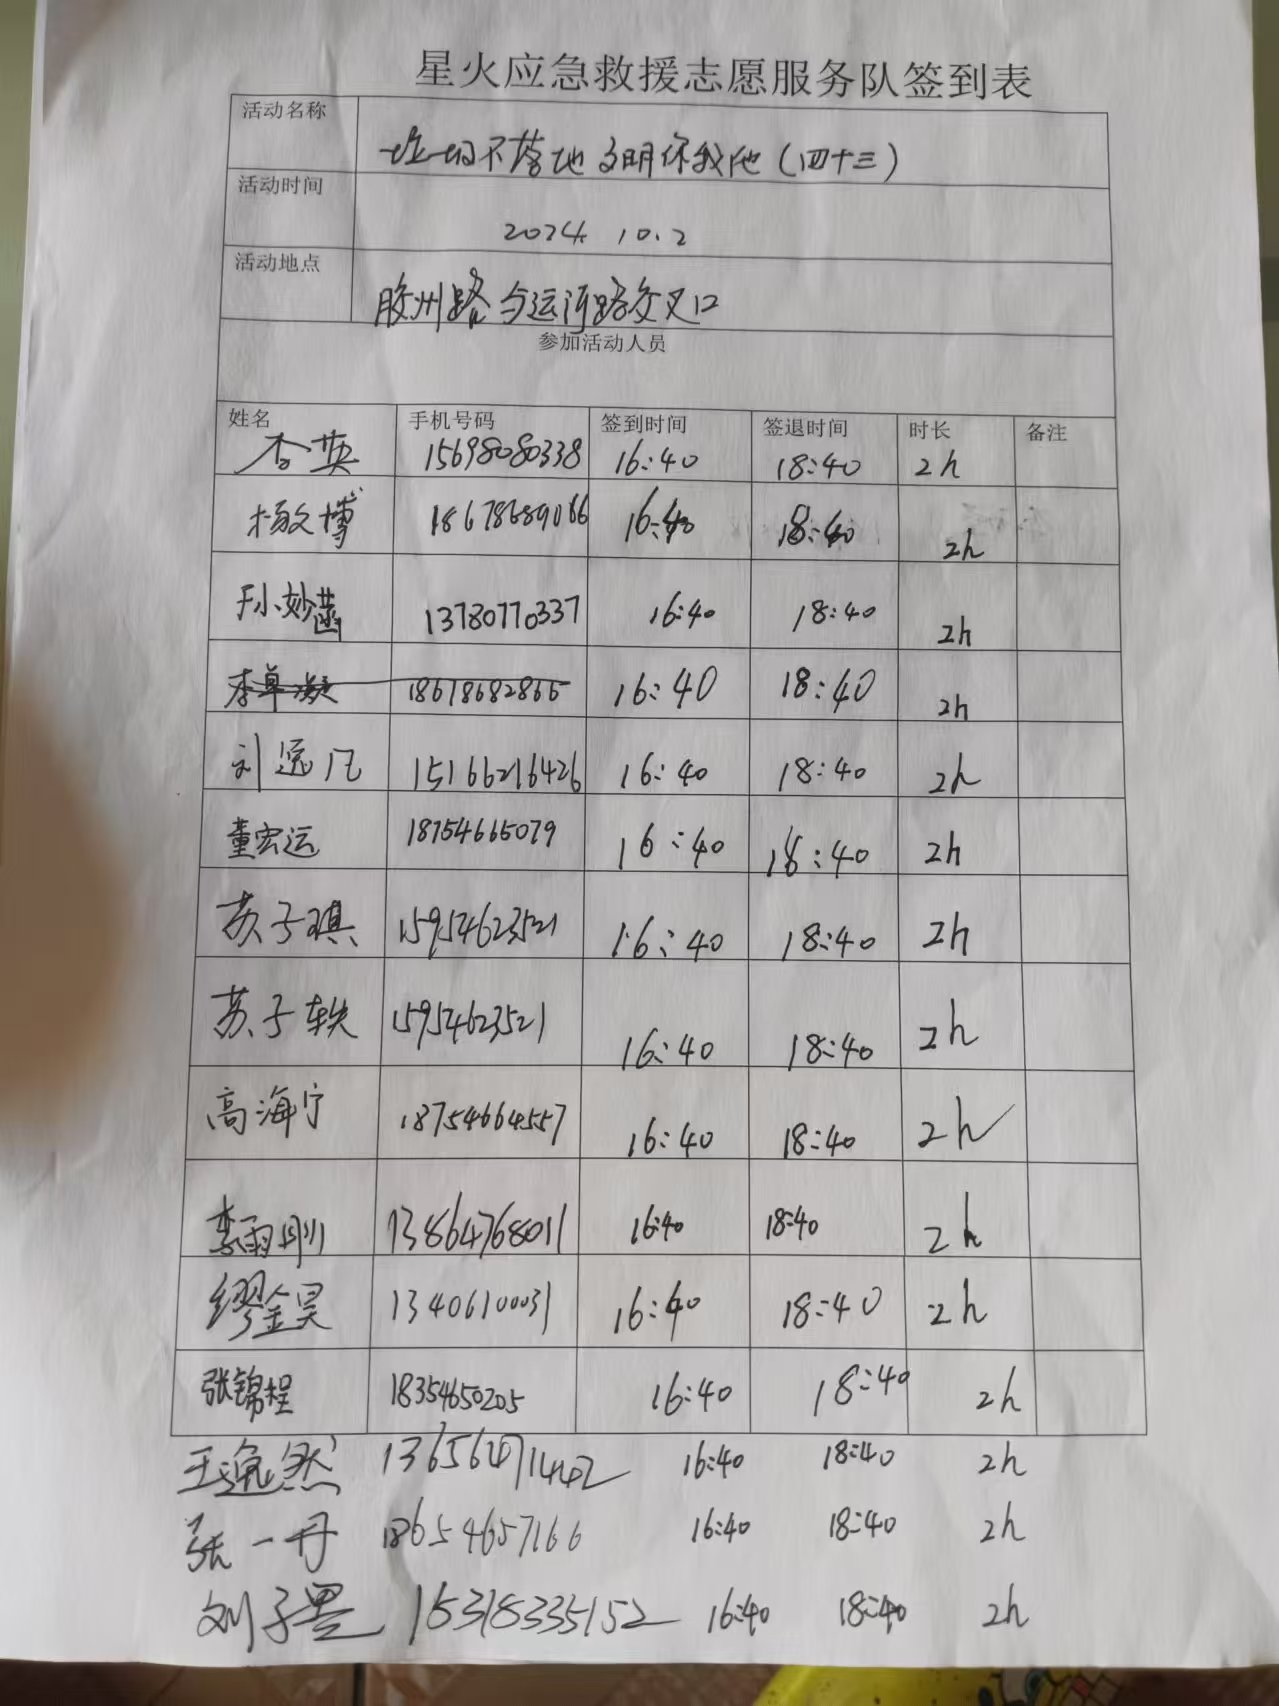 星火应急救援志愿服务队签到表
活动名称 垃圾不落地 文明你我他（四十三）
活动时间 2024. 10.2
活动地点 胶州路与运河路交叉口
参加活动人员
姓名 手机号码 签到时间 签退时间 时长 备注
李英 15698080338 16:40 18:40 2h
杨文博 18678689066 16:40 18:40 2h
孙妙菡 13780770337 16:40 18:40 2h
李卓凝 18678682866 16:40 18:40 2h
刘远凡 15166216426 16:40 18:40 2h
董宏运 18754665079 16:40 18:40 2h
苏子琪 15954623521 16:40 18:40 2h
苏子轶 15954623521 16:40 18:40 2h
高海宁 18754664557 16:40 18:40 2h
李雨 13864768011 16:40 18:40 2h
缪金昊 13406100031 16:40 18:40 2h
张锦程 18354650205 16:40 18:40 2h
王逸然 13656471442 16:40 18:40 2h
张一丹 18654657166 16:40 18:40 2h
刘子墨 15318335152 16:40 18:40 2h